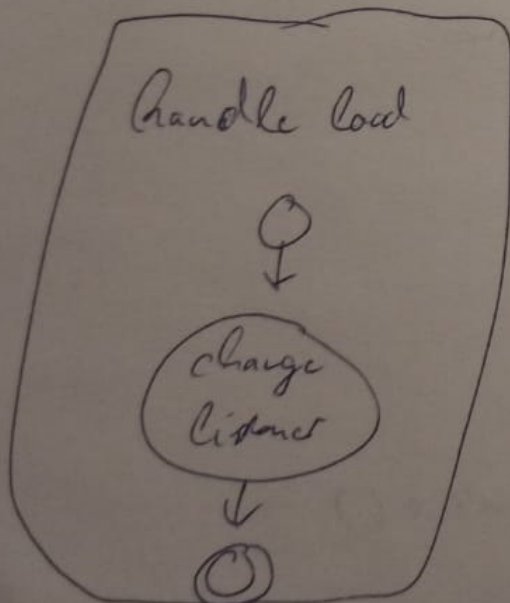 handle load
change
listener